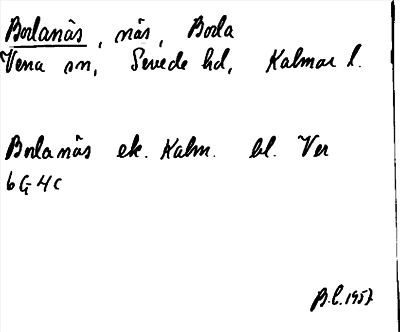 Borlanäs, näs, Borla
Vena sn, Sevede hd, Kalmar l.
Borlanäs ek. Kalm. bl. Ver
6G4c
B.L. 1957